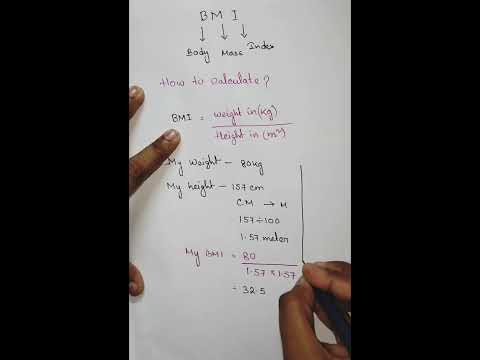 BMI
Body Mass Index
How to Calculate?
BMI = weight in (kg)
Height in (m²)
My weight - 80kg
My height - 157 cm
CM → M
157 ÷ 100
1.57 meter
My BMI = 80
1.57 × 1.57
= 32.5